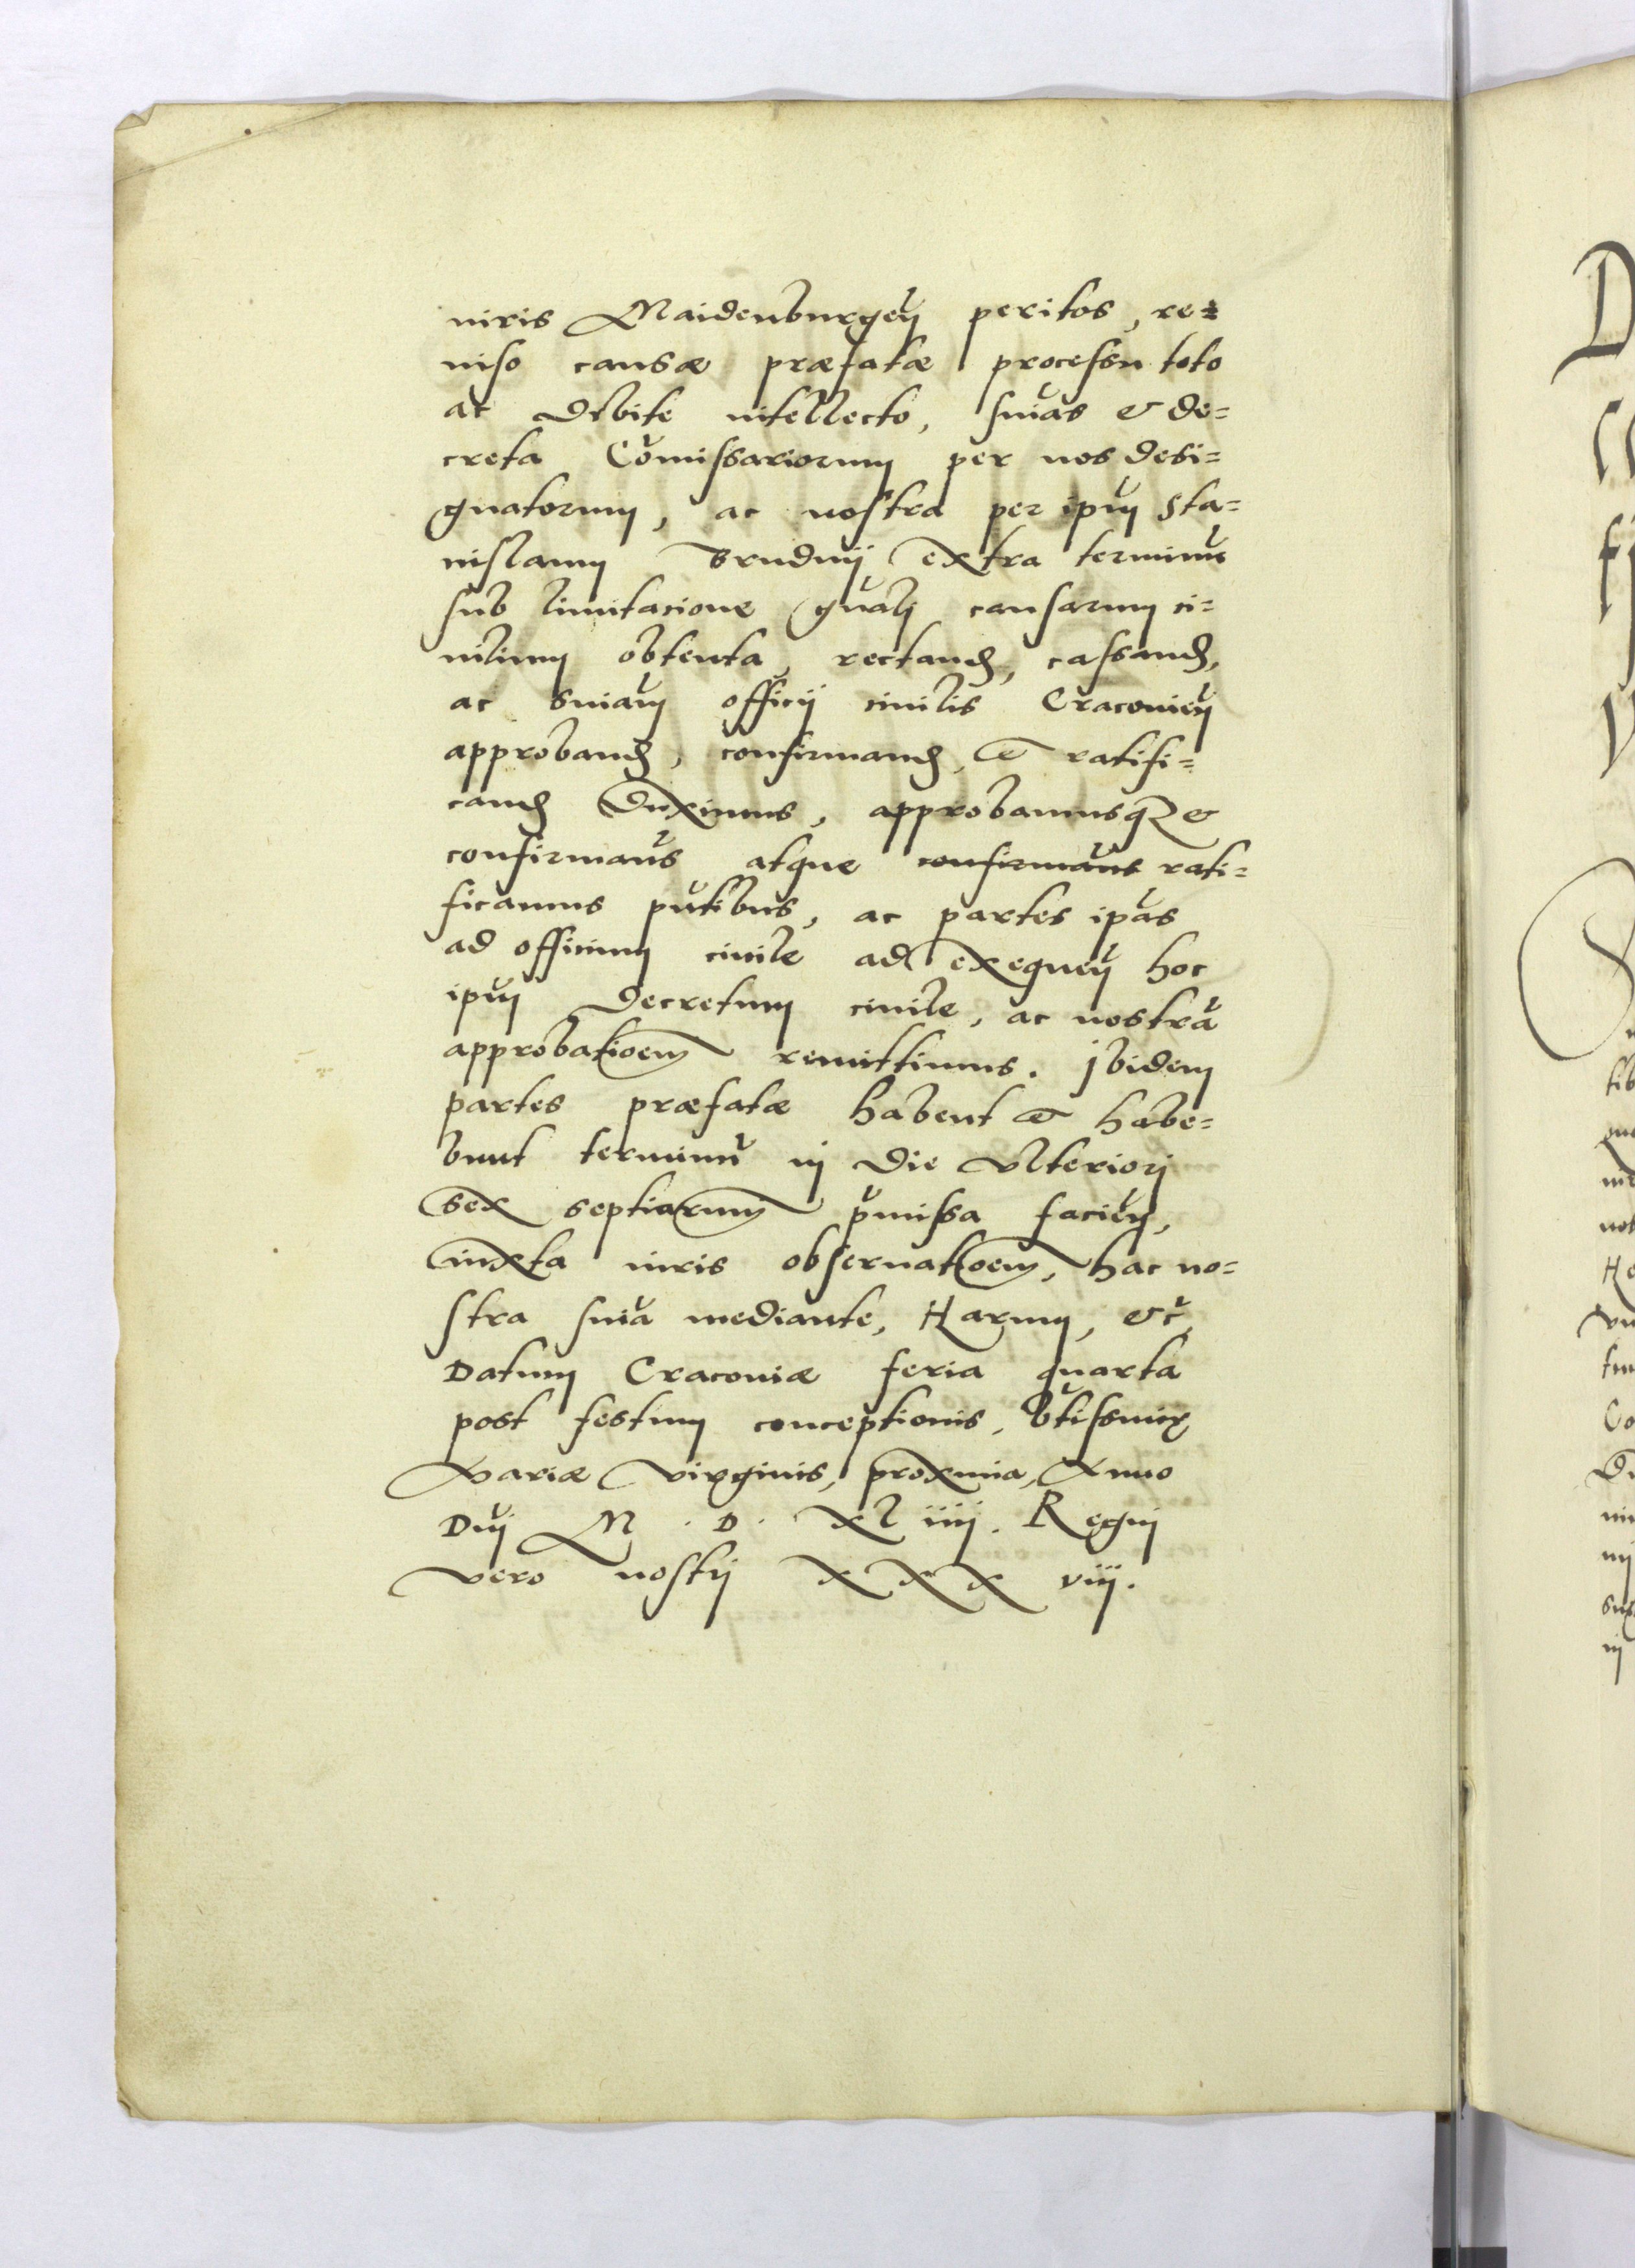 iuris Maidenburgeñ peritos, re=
uiso causæ præfatæ processu toto
ac debite intellecto, sñias & de=
creta Com̃issariorum per nos desi=
gnatorum, ac nostra per ip̃um Sta=
nislaum Brudnij extra terminũ
sub limitacione gñali causarum ci=
uilium obtenta, rectand, cassand,
ac sñiam officij ciuilis Cracouieñ
approband, confirmand, & ratifi=
cand duximus, approbamusq₃ &
confirmam̃s atque confirmam̃s rati=
ficamus p̃ñtibus, ac partes ip̃as
ad officium ciuile ad exequeñ hoc
ip̃um decretum ciuile, ac nostrã
approbatioem remittimus. Ibidem
partes præfatæ habent & habe=
bunt terminũ in die vlteriori
sex septiarum p̃missa facieñ,
iuxta iuris obseruatioem, hac no=
stra sñia mediante, Harum, &c̃
Datum Cracouiæ feria quarta
post festum conceptionis, bt̃issimæ
Mariæ virginis, proxima, Anno
Dñi M . D . xl iiij. Regni
vero nostrj x x x viij.